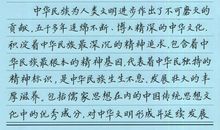 中华民族为人类文明进步作出了不可磨灭的
贡献。五千多年连绵不断、博大精深的中华文化,
积淀着中华民族最深沉的精神追求,包含着中华
民族最根本的精神基因,代表着中华民族独特的
精神标识,是中华民族生生不息、发展壮大的丰
厚滋养。包括儒家思想在内的中国传统思想文
化中的优秀成分,对中华文明形成并延续发展